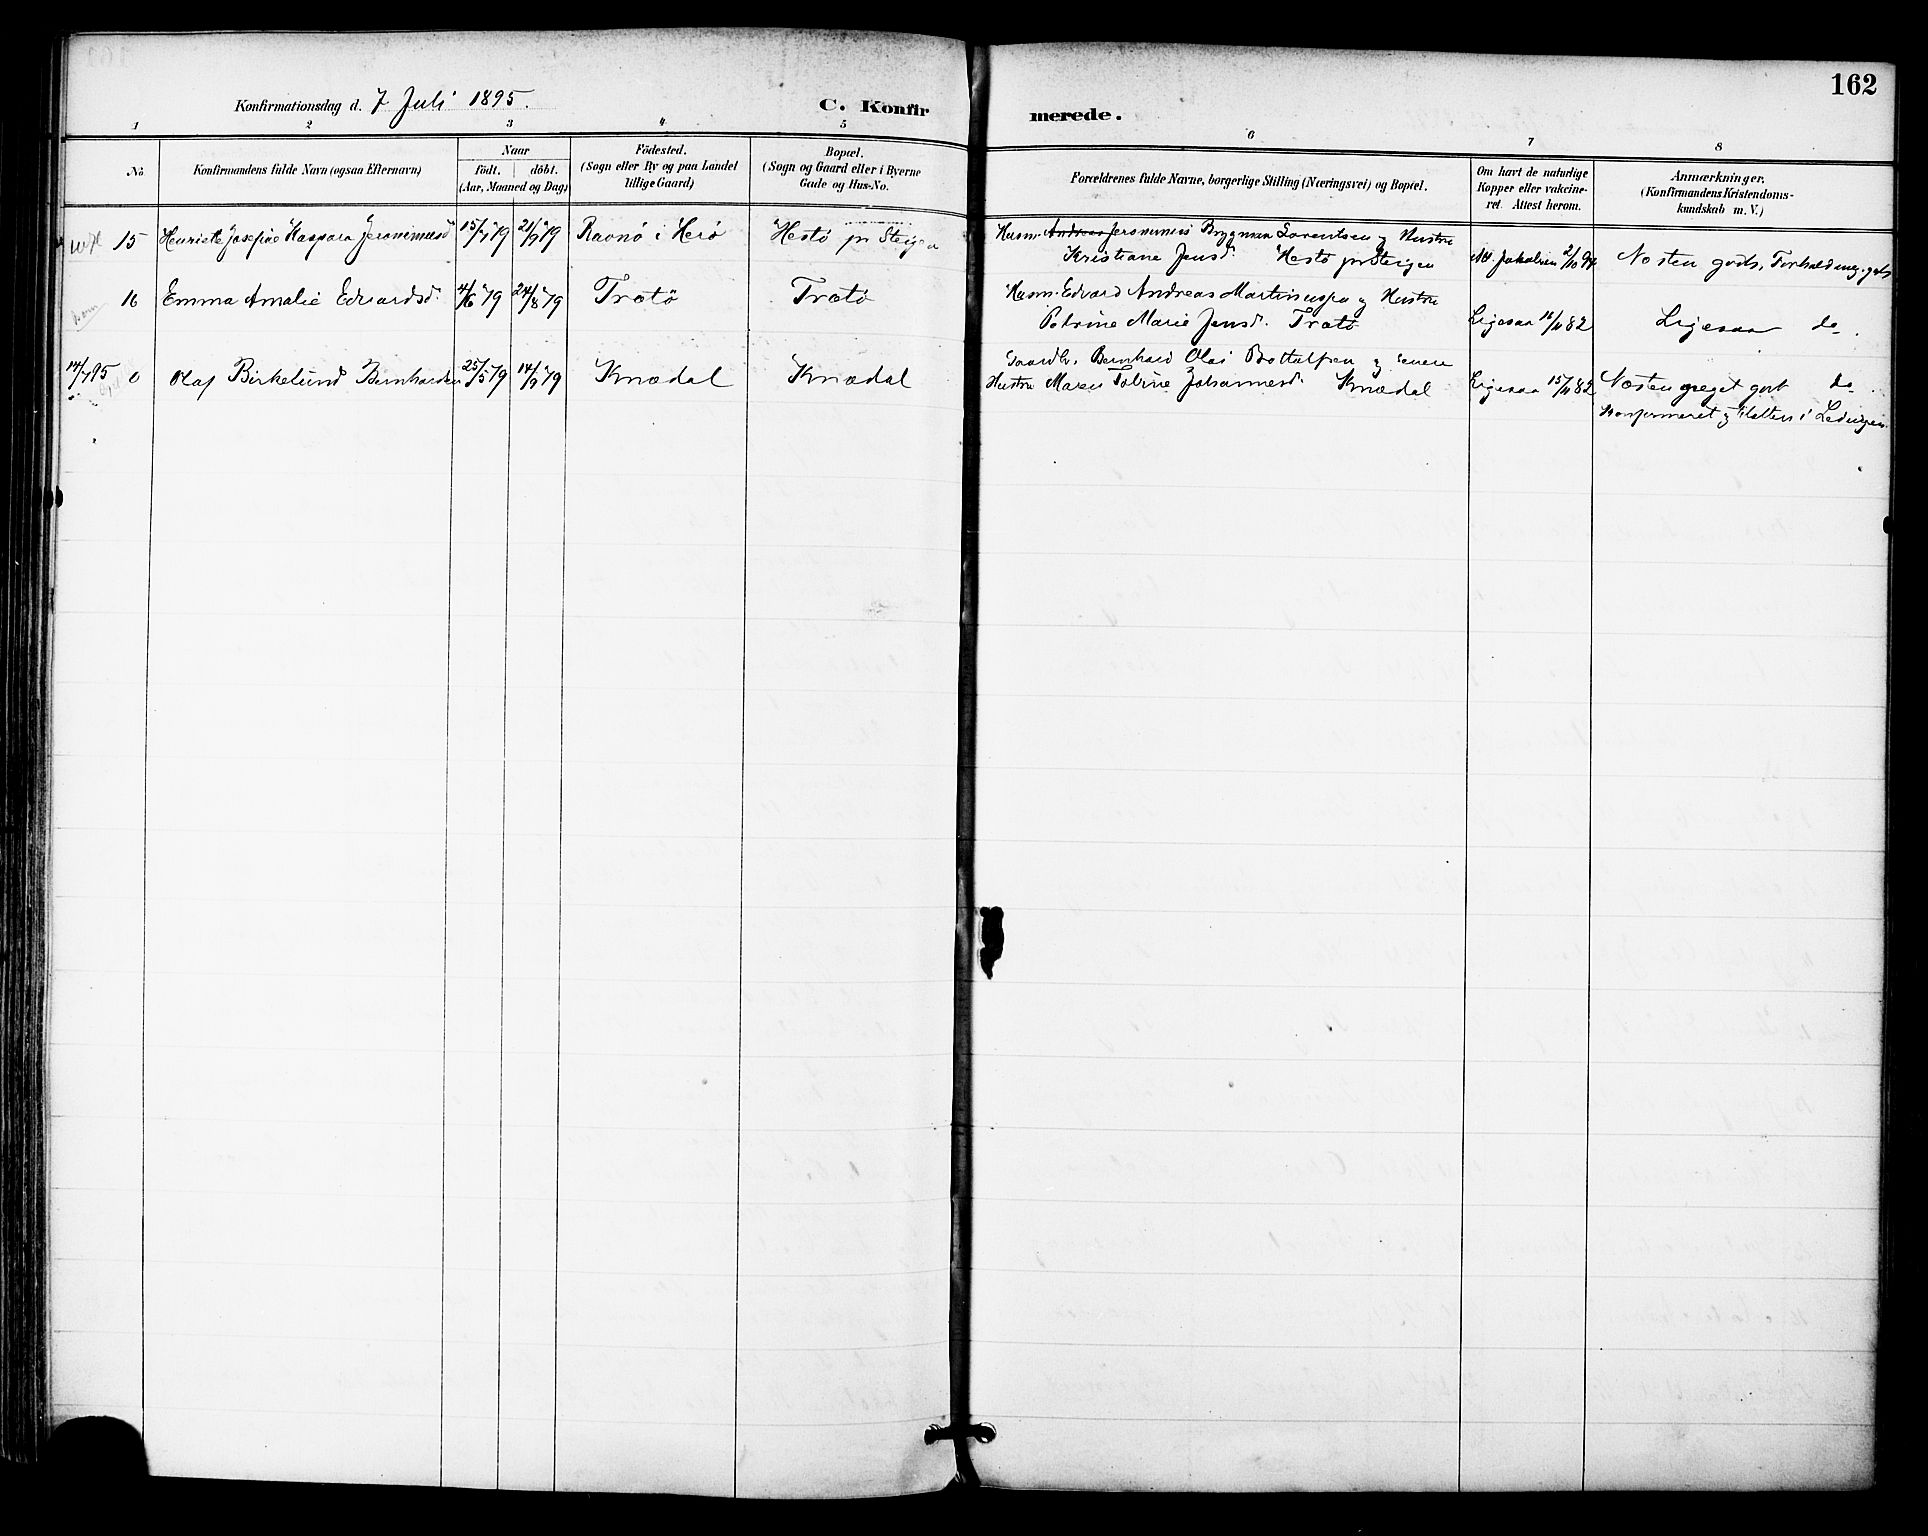 162
Konfirmationsdag d. 7 Juli 1895.
C. Konfirmerede.
1 2 3 4 5 6 7 8
No
Konfirmandens fulde Navn (ogsaa Efternavn)
Naar
födt. döbt.
(Aar, Maaned og Dag)
Födested.
(Sogn eller By og paa Landet
tillige Gaard)
Bopæl.
(Sogn og Gaard eller i Byerne
Gade og Hus-No.
Forældrenes fulde Navne, borgerlige Stilling (Næringsvei) og Bopæl.
Om havt de naturlige
Kopper eller vakcine-
ret. Attest herom.
Anmærkninger.
(Konfirmandens Kristendoms-
kundskab m. V.)
15 Henriette Josefine Kaspara Jeronimusd 15/1 79 21/9 79 Ravnö i Herö Hestö pr Steigen
Husm. Andreas Jeronimus Brygman Lorentsen og Hustru
Kristiane Jensd. Hestö pr Steigen
Jakobsen 2/10 94 Næsten godt. Forhold meg. godt
16 Emma Amalie Edvardsd. 4/6 79 24/8 79 Trætö Trætö
Husm. Edvard Andreas Martinussen og Hustru
Petrine Marie Jensd. Trætö
Ligesaa 16/11 82 Ligesaa do.
14/7 95 0 Olaf Birkelund Bernhardsen 25/5 79 14/9 79 Knædal Knædal
Gaardb. Bernhard Olai Bottolfsen og
Hustru Maren Tobine Johannesd. Knædal
Ligesaa 15/11 82 Næsten meget godt do.
Konfirmeret i Lødingen.